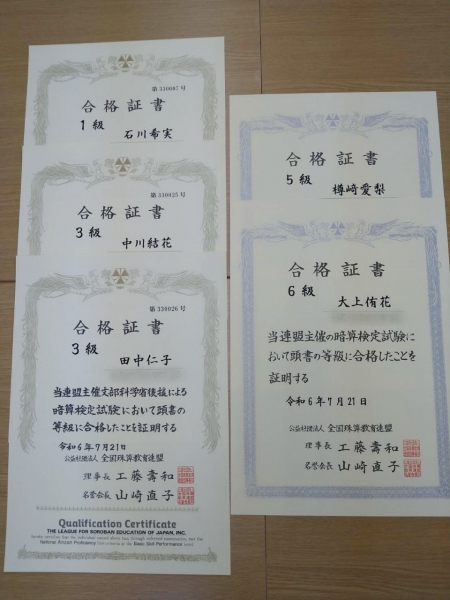 第330007号
合格証書
1級
石川希実
第330025号
合格証書
3級
中川結花
第330026号
合格証書
3級
田中仁子
当連盟主催文部科学省後援による
暗算検定試験において頭書の
等級に合格したことを証明する
令和6年7月21日
公益社団法人 全国珠算教育連盟
理事長 工藤壽和
名誉会長 山崎直子
Qualification Certificate
THE LEAGUE FOR SOROBAN EDUCATION OF JAPAN, INC.
合格証書
5級
樽崎愛梨
合格証書
6級
大上侑花
当連盟主催の暗算検定試験に
おいて頭書の等級に合格したことを
証明する
令和6年7月21日
公益社団法人 全国珠算教育連盟
理事長 工藤壽和
名誉会長 山崎直子